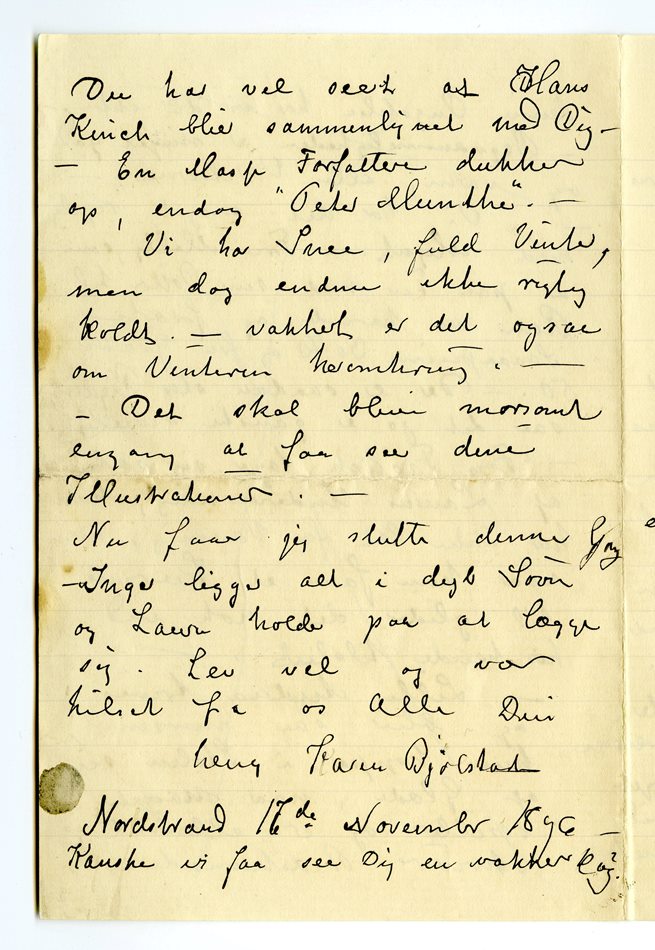 Du har vel seet at Hans
Kinck blir sammenlignet med Dig –
– En Masse Forfattere dukker
op, endog "Peter Munthe". –
Vi har Snee, fuld Vinter,
men dog endnu ikke rigtig
koldt. – vakkert er det ogsaa
om Vinteren heromkring. –
– Det skal blive morsomt
engang at faa see dine
Illustrationer. –
Nu faar jeg slutte denne Gang
– Inga ligger alt i dyb Søvn
og Laura holder paa at lægge
sig. Lev vel og vær
hilset fra os Alle Din
heng Karen Bjølstad
Nordstrand 17de November 1896 –
Kanske vi faa see Dig en vakker Dag?